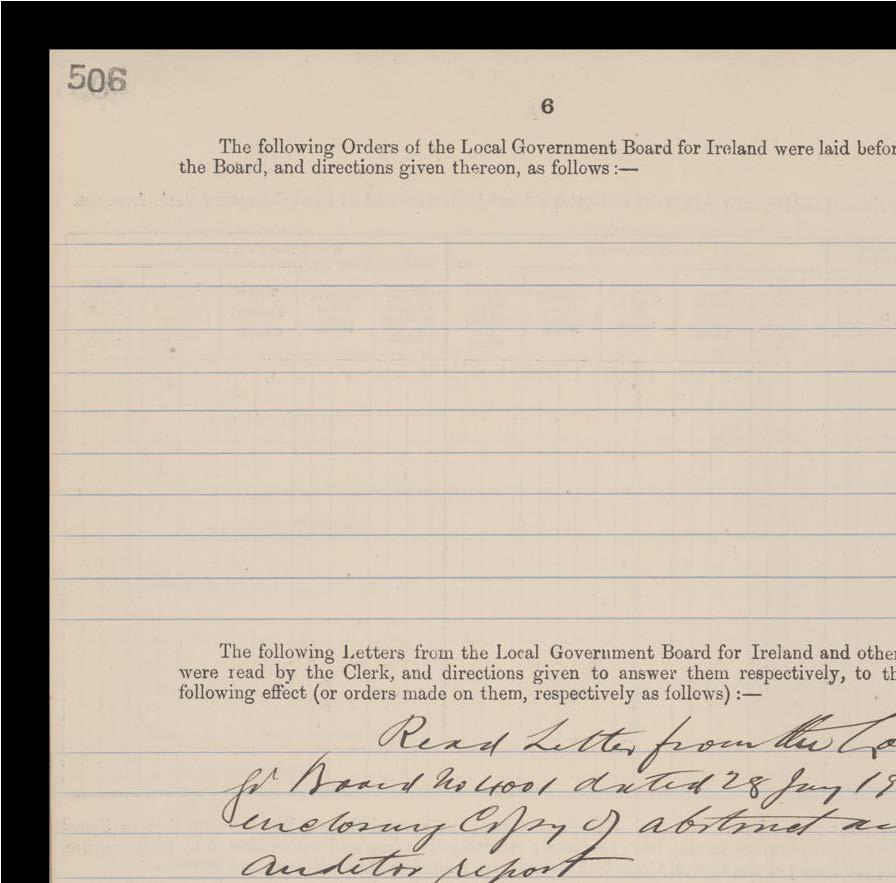 506
6
The following Orders of the Local Government Board for Ireland were laid befor
the Board, and directions given thereon, as follows :—
The following Letters from the Local Government Board for Ireland and other
were read by the Clerk, and directions given to answer them respectively, to th
following effect (or orders made on them, respectively as follows) :—
Read Letter from the Lo
Gt Board No 4001 dated 28 Jany 19
enclosing Copy of abstract an
auditor report